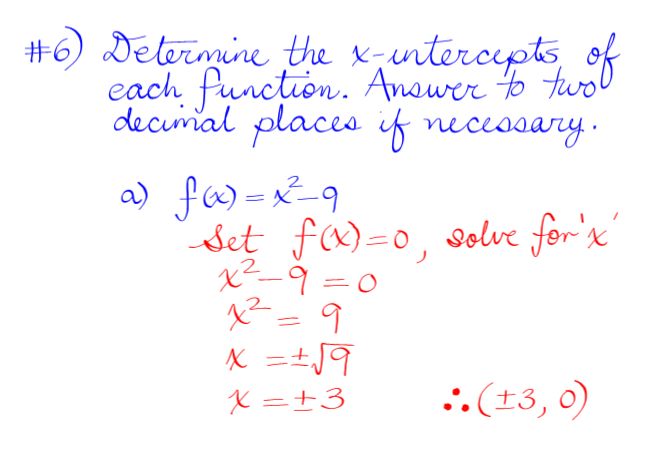 #6) Determine the x-intercepts of
each function. Answer to two
decimal places if necessary.
a) f(x) = x²-9
Set f(x)=0, solve for 'x'
x²-9 = 0
x² = 9
x = ±√9
x = ±3 ∴ (±3, 0)